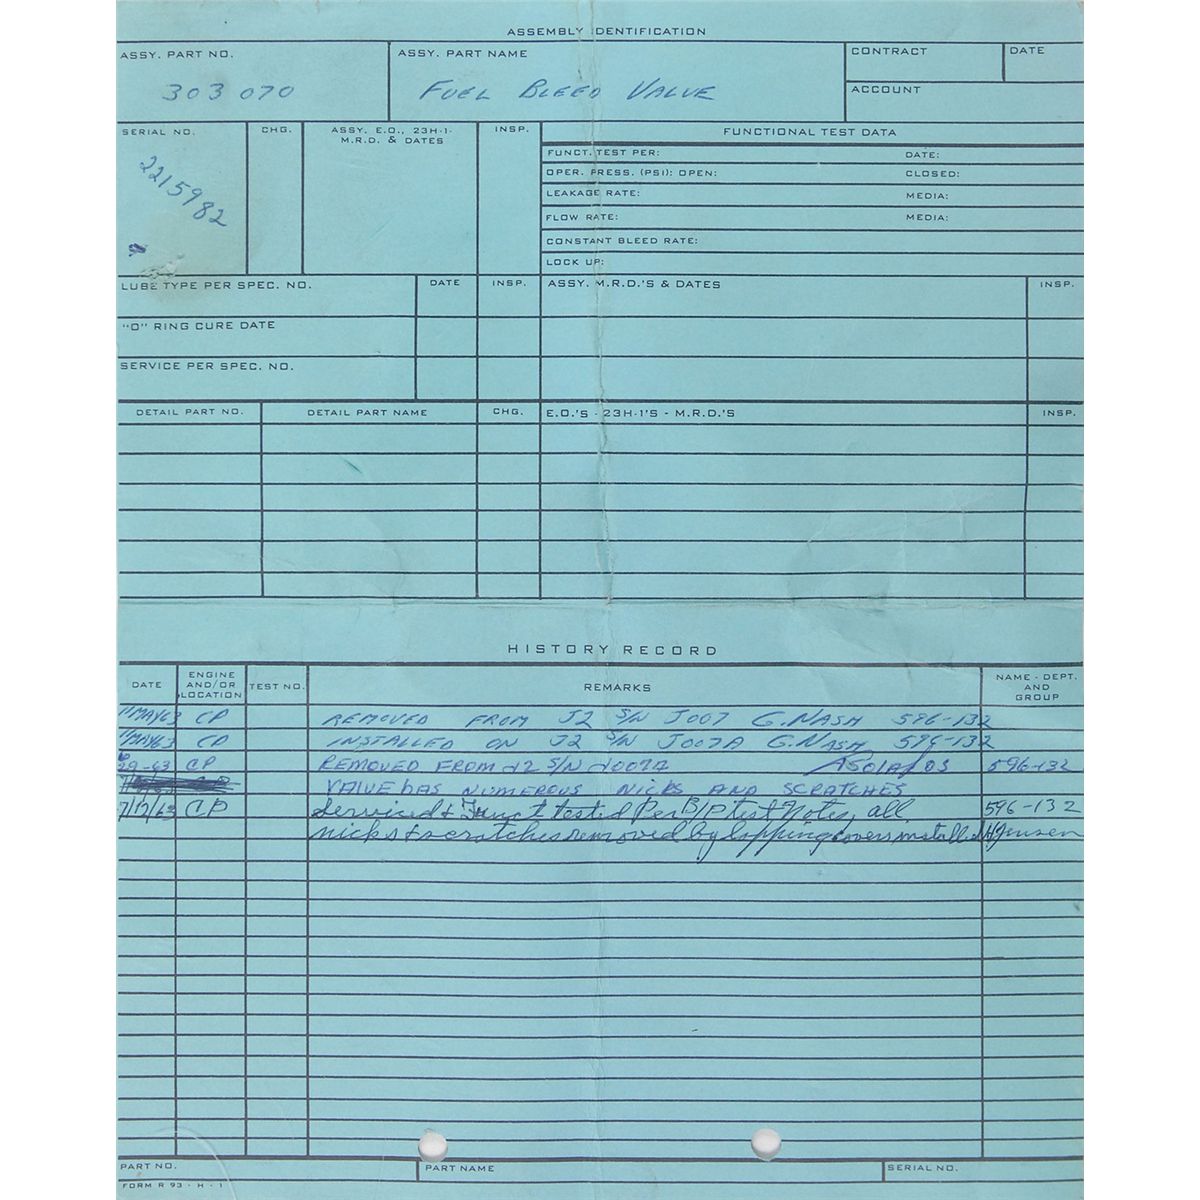 ASSEMBLY IDENTIFICATION
ASSY. PART NO. ASSY. PART NAME CONTRACT DATE
303070 FUEL BLEED VALVE
ACCOUNT
SERIAL NO. CHG. ASSY. E.O., 23H-1- M.R.D. & DATES INSP. FUNCTIONAL TEST DATA
2215982
FUNCT. TEST PER: DATE:
OPER. PRESS. (PSI): OPEN: CLOSED:
LEAKAGE RATE: MEDIA:
FLOW RATE: MEDIA:
CONSTANT BLEED RATE:
LOCK UP:
LUBE TYPE PER SPEC. NO. DATE INSP. ASSY. M.R.D.'S & DATES INSP.
"O" RING CURE DATE
SERVICE PER SPEC. NO.
DETAIL PART NO. DETAIL PART NAME CHG. E.O.'S - 23H-1'S - M.R.D.'S INSP.
HISTORY RECORD
DATE ENGINE AND/OR LOCATION TEST NO. REMARKS NAME - DEPT. AND GROUP
11MAY63 CP REMOVED FROM J2 S/N J007 G. NASH 596-132
11MAY63 CP INSTALLED ON J2 S/N J007A G. NASH 596-132
6-29-63 CP REMOVED FROM J2 S/N J007A 596-132
VALVE HAS NUMEROUS NICKS AND SCRATCHES
7/17/63 CP Serviced & Funct tested Per B/P test Notes, all 596-132
nicks & scratches removed by lapping covers installed H Jensen
PART NO. PART NAME SERIAL NO.
FORM R 93 - H - 1